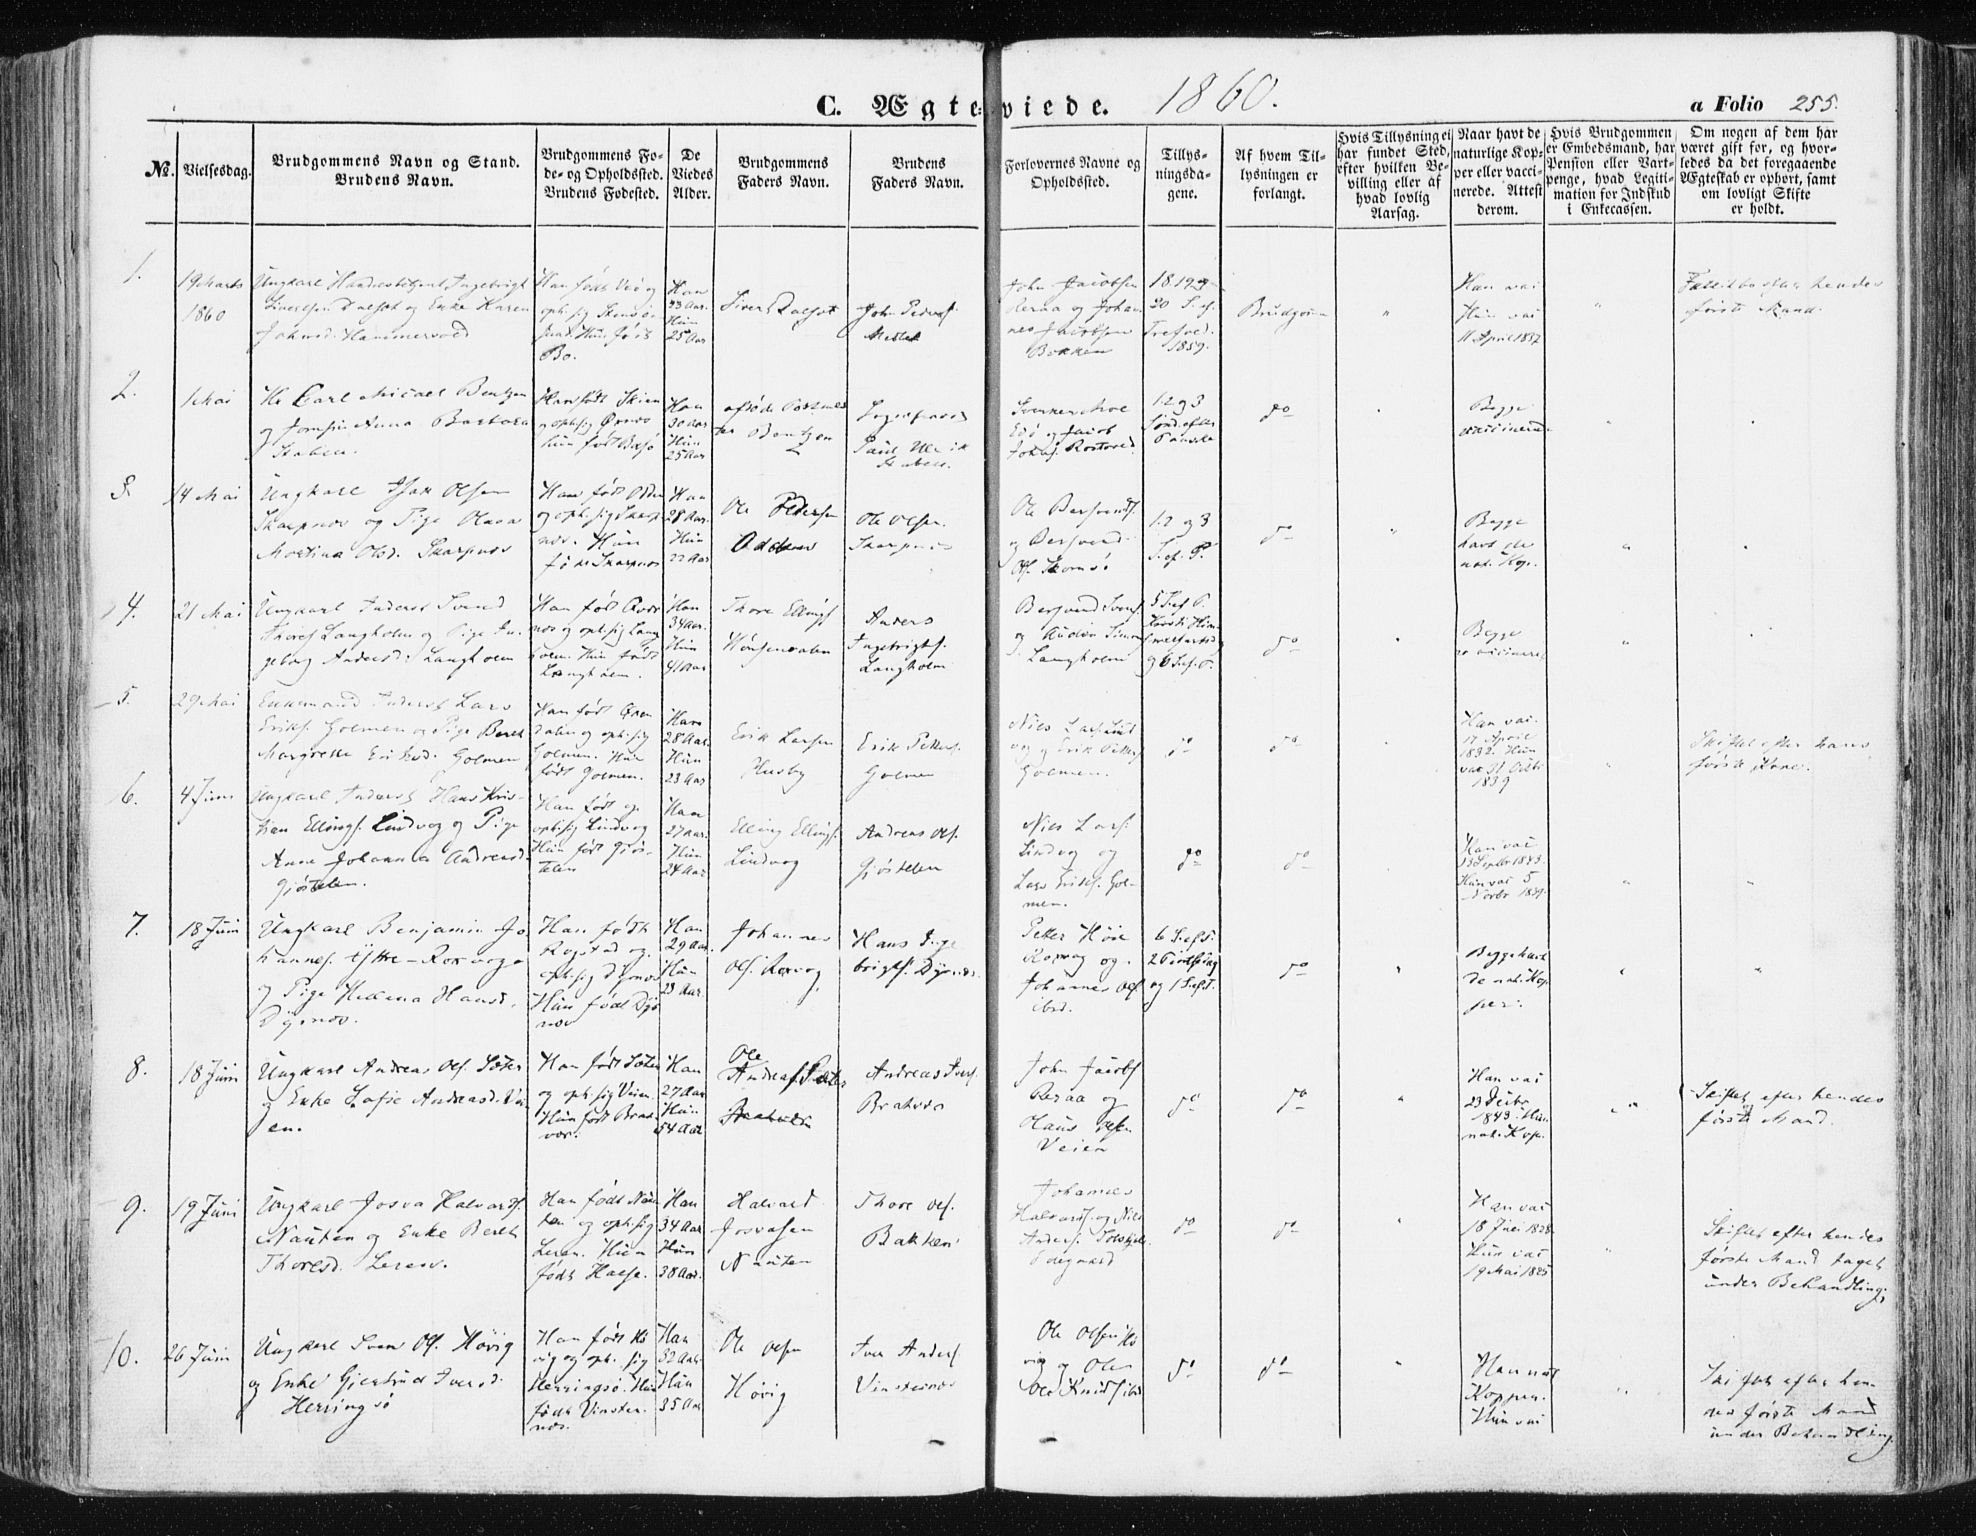 C. Ægteviede. 1860.
a Folio 255.
No.
Vielsesdag.
Brudgommens Navn og Stand.
Brudens Navn.
Brudgommens Fø-
de- og Opholdssted.
Brudens Fødested.
De
Viedes
Alder.
Brudgommens
Faders Navn.
Brudens
Faders Navn.
Forlovernes Navne og
Opholdssted.
Tillys-
ningsda-
gene.
Af hvem Til-
lysningen er
forlangt.
Hvis Tillysning ei
har fundet Sted,
efter hvilken Be-
villing eller af
hvad lovlig
Aarsag.
Naar havt de
naturlige Kop-
per eller vacci-
nerede. Attest
derom.
Hvis Brudgommen
er Embedsmand, har
Pension eller Vart-
penge, hvad Legiti-
mation for Indskud
i Enkecassen.
Om nogen af dem har
været gift før, og hvor-
ledes da det foregaaende
Ægteskab er ophørt, samt
om lovligt Skifte
er holdt.
1.
19 Marts
1860
Ungkarl Handelsbetjent Ingebrigt
Sivertsen Dalsot og Enke Karen
Johnsd. Hammervold
Han født
opholdsig
Hun født
Bo.
Han
33 Aar.
Hun
25 Aar
Sivert Dalsot
John Peders.
John Jacobsen
Reraa og Johan-
nes Jacobsen
Bakken
18. 19. og
20 S. ef.
Trefold.
1859.
Brudgom
"
Han vac
Hun vac
11 April 1837
"
første Mand.
2.
1 Mai
Hr Carl Michael Bentzen
og Jomfru Anna Barbara
Stabell.
Han født Skien
og oph. sig Ørnes
hun født
Han
30 Aar
Hun
25 Aar
afdøde Postmes-
ter Bentzen
Sognepræst
Paul Ulrik
Stabell.
Jacob
1 2 og 3
Sønd. efter
Paaske
do
Begge
vaccinerede
3.
14 Mai
Ungkarl Isak Olsen
Skarpnes og Pige Olava
Martina Olsd. Skarpnes
Han født Odden
og oph. sig Skarp-
nes. Hun
født Skarpnes
Han
28 Aar.
Hun
22 Aar
Ole Pedersen
Odden
Ole Olsen
Skarpnes
Ole Bersvends.
og Bersvend
Ols. Skomsø
1. 2 og 3
S. ef. P.
do
"
Begge
havt de
nat. Kop.
"
4.
21 Mai
Ungkarl Inderst Svend
Thores. Langholm og Pige In-
geborg Andersd. Langholm
Han født
nes og oph. sig Lang-
holm. Hun født
Langholm.
Han
34 Aar.
Hun
41 Aar
Thore Ellings.
Anders
Ingebrigts.
Langholm
Bersvend Svends.
og Audin Simons.
Langholm
5 S. ef. P.
Kristi Him-
melfartsd.
og 6 S. ef. P.
do
Begge
vaccinerede
"
5.
29 Mai
Enkemand Inderst Lars
Eriks. Golmen og Pige Beret
Margrethe Eriksd. Golmen
Han født Øren-
dalen og oph. sig
Golmen. Hun
født Golmen.
Han
28 Aar.
Hun
23 Aar
Erik Larsen
Husby
Erik Petters.
Golmen
Nils Lars. Lind-
vog og Erik Petters.
Golmen.
do
do
Han vac.
17 April
1832. Hun
vac 31 Octbr
1839
Skiftet efter hans
første Kone.
6.
4 Juni
Ungkarl Inderst Hans Kris-
tian Ellings. Lindvog og Pige
Anne Johanna Andreasd.
Gjøstelen.
Han født og
oph. sig Lindvog
Hun født Gjøs-
telen
Han
27 Aar.
Hun
24 Aar
Elling Ellings.
Lindvog
Andreas Ols.
Gjøstelen
Nils Lars.
Lindvog og
Lars Eriks. Gol-
men.
do
do
Han vac
13 Septbr 1843.
Hun vac 5
Novbr 1839.
"
"
7.
18 Juni
Ungkarl Benjamin Jo-
hannes. Ytre-Roxvog
og Pige Hellena Hansd.
Dyrnes.
Han født
Rogstad og
oph. sig Dyrnes
Hun født Dyr-
nes
Han
29 Aar.
Hun
23 Aar.
Johannes
Ols. Roxvog
Hans Inge-
brigts. Dyrnes.
Petter Høie
Roxvog og
Johannes Ols.
ibid.
6 S. ef. P.
2 Pintsedag
og 1 S. ef. T.
do
"
Begge havt
de nat. Kop-
per.
"
"
8.
18 Juni
Ungkarl Andreas Ols. Sæter
og Enke Sofie Andreasd. Vei-
en.
Han født Sæter
og oph. sig Veien
Hun født Brat-
vær.
Han
27 Aar
Hun
54 Aar
Ole
Andreas. Sæter
Andreas Ivers.
Bratvær
John Jacobs.
Reraa og
Claus Olsen
Veien
do
do
"
Han vac
23 Decbr
1843. Hun
nat. Kop.
"
Skiftet efter hendes
første Mand.
9.
19 Juni
Ungkarl Josva Halvards.
Nauten og Enke Beret
Thoresd. Leren.
Han født Nau-
ten og oph. sig
Leren. Hun
født Halse.
Han
34 Aar
Hun
38 Aar.
Halvard
Josvasen
Nauten
Thore Ols.
Bakken
Johannes
Halvards. og Nils
Anders.
Ødegaard
do
do
"
Han vac
18 Juli 1828
Hun vac
19 Mai 1825
"
Skiftet efter hendes
første Mand taget
under Behandling.
10.
26 Juni
Ungkarl Sven Ols. Høvig
og Enke Gjertrud Iversd.
Herringsø
Han født Hø-
vig og oph. sig
Herringsø. Hun
født Vinster-
nes.
Han
32 Aar.
Hun
35 Aar
Ole Olsen
Høvig
Iver Anders.
Vinsternes
Ole Olsen Hø-
vig og Ole
Knuds. ibid.
do
do
"
Han nat
Kopper.
Hun vac
"
Skiftet efter hen-
des første Mand
under Behandling.